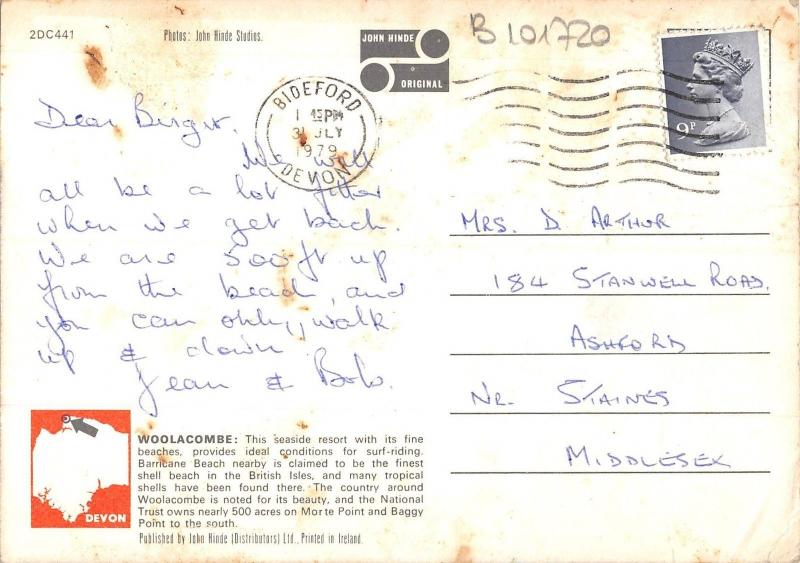 2DC441
Photos: John Hinde Studios.
JOHN HINDE
ORIGINAL
B 101720
BIDEFORD
1 45 PM
31 JLY
1979
DEVON
9P
Dear Birgit.
We will
all be a lot fitter
when we get back.
We are 500ft up
from the beach, and
you can only, walk
up & down
Jean & Bob.
MRS. D. ARTHUR
184 STANWELL ROAD.
ASHFORD
NR. STAINES
MIDDLESEX
DEVON
WOOLACOMBE: This seaside resort with its fine
beaches, provides ideal conditions for surf-riding.
Barricane Beach nearby is claimed to be the finest
shell beach in the British Isles, and many tropical
shells have been found there. The country around
Woolacombe is noted for its beauty, and the National
Trust owns nearly 500 acres on Morte Point and Baggy
Point to the south.
Published by John Hinde (Distributors) Ltd., Printed in Ireland.